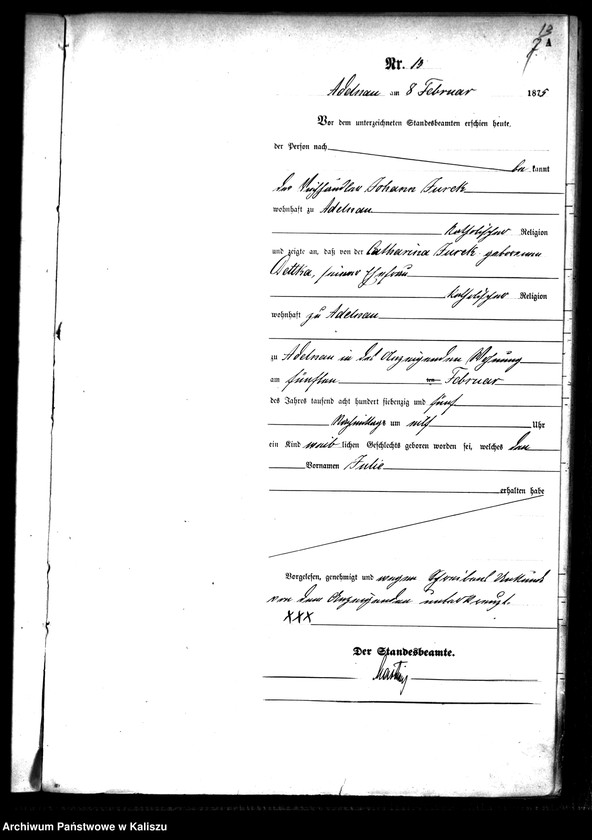 13
A
Nr. 13
Adelnau am 8 Februar 1875
Vor dem unterzeichneten Standesbeamten erschien heute,
der Person nach
be kannt
der Viehhändler Johann Jurek
wohnhaft zu Adelnau
katholischer Religion
und zeigte an, daß von der Catharina Jurek geborenen
seiner Ehefrau
katholischer Religion
wohnhaft zu Adelnau
zu Adelnau in des Anzeigenden Wohnung
am fünften ten Februar
des Jahres tausend acht hundert siebenzig und fünf
Nachmittags um elf Uhr
ein Kind weib lichen Geschlechts geboren worden sei, welches den
Vornamen Julie
erhalten habe
Vorgelesen, genehmigt und wegen Schreibens Unkunde
von dem Anzeigenden unterkreuzt.
XXX
Der Standesbeamte.
Archiwum Państwowe w Kaliszu